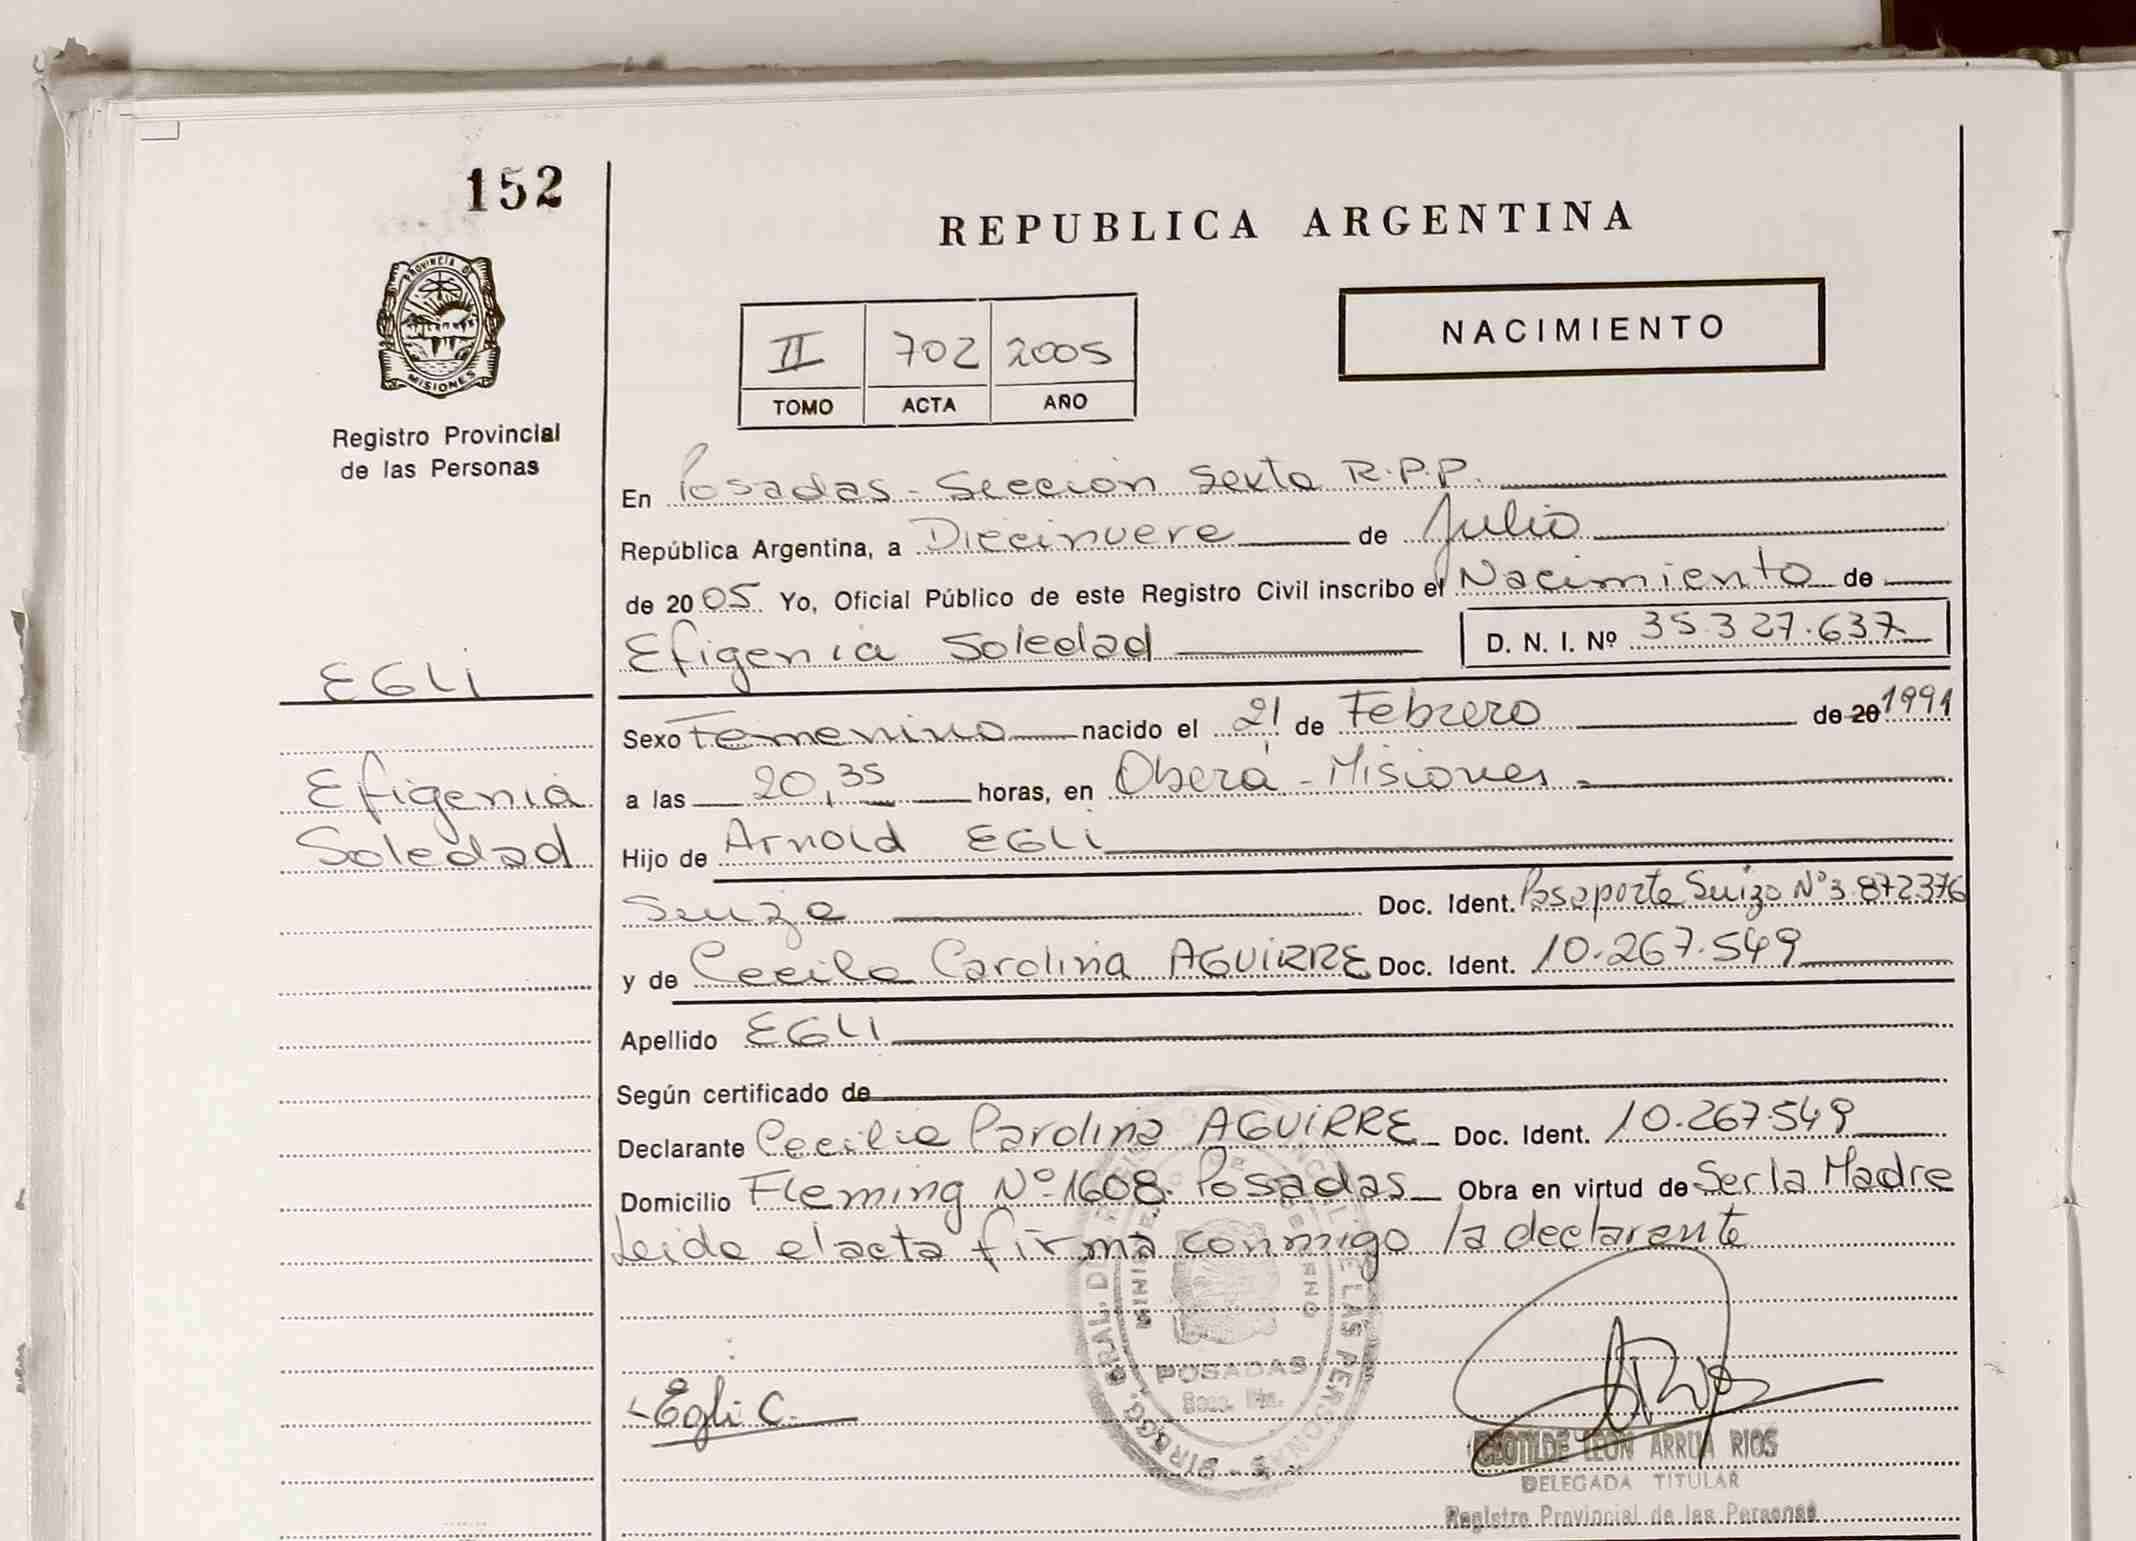 152
REPUBLICA ARGENTINA
PROVINCIA DE
MISIONES
Registro Provincial
de las Personas
II 702 2005
TOMO ACTA AÑO
NACIMIENTO
En Posadas - Sección Sexta R.P.P.
República Argentina, a Diecinueve de Julio
de 2005 Yo, Oficial Público de este Registro Civil inscribo el Nacimiento de
Efigenia Soledad D. N. I. Nº 35.327.637
EGLI
Sexo Femenino nacido el 21 de Febrero de 20 1991
Efigenia
a las 20,35 horas, en Oberá - Misiones
Soledad
Hijo de Arnold EGLI
Suiza Doc. Ident. Pasaporte Suizo Nº 3.872376
y de Cecila Carolina AGUIRRE Doc. Ident. 10.267.549
Apellido EGLI
Según certificado de
Declarante Cecilia Carolina AGUIRRE Doc. Ident. 10.267.549
Domicilio Fleming Nº 1608. Posadas Obra en virtud de Ser la Madre
Leida el acta firma conmigo la declarente
POSADAS
Egli C.
LEON ARRUA RIOS
DELEGADA TITULAR
Registro Provincial de las Personas